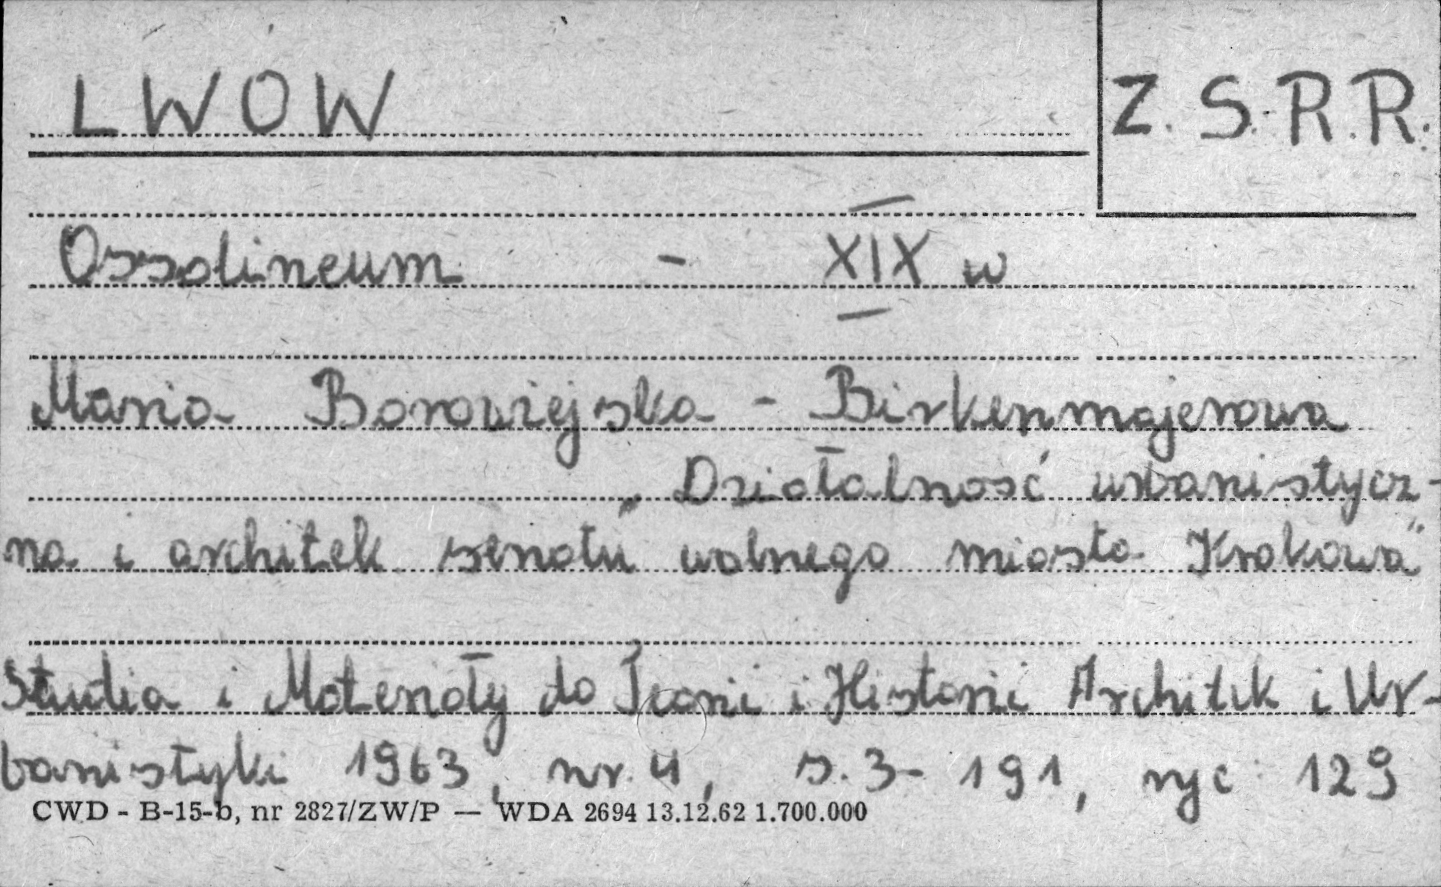 LWOW
Z.S.R.R.
Ossolineum - XIX w
Maria Borowiejska - Birkenmajerowa
„Działalność urbanistycz-
na i architek senatu wolnego miasta Krakowa”
Studia i Materiały do Teorii i Historii Architek i Ur-
banistyki 1963, nr. 4, s. 3-191, ryc 129
CWD - B-15-b, nr 2827/ZW/P — WDA 2694 13.12.62 1.700.000